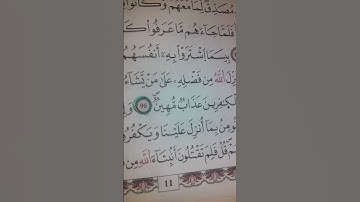 مُصَدِّقٌ لِّمَا مَعَهُمْ وَكَانُوا
فَلَمَّا جَاءَهُم مَّا عَرَفُوا كَ
بِئْسَمَا اشْتَرَوْا بِهِ أَنفُسَهُمْ
نَزِّلَ اللَّهُ مِن فَضْلِهِ عَلَىٰ مَن يَشَاءُ
لِلْكَافِرِينَ عَذَابٌ مُّهِينٌ ٩٠ وَإِ
ؤْمِنُ بِمَا أُنزِلَ عَلَيْنَا وَيَكْفُرُو
مْ قُلْ فَلِمَ تَقْتُلُونَ أَنبِيَاءَ اللَّهِ مِن
11